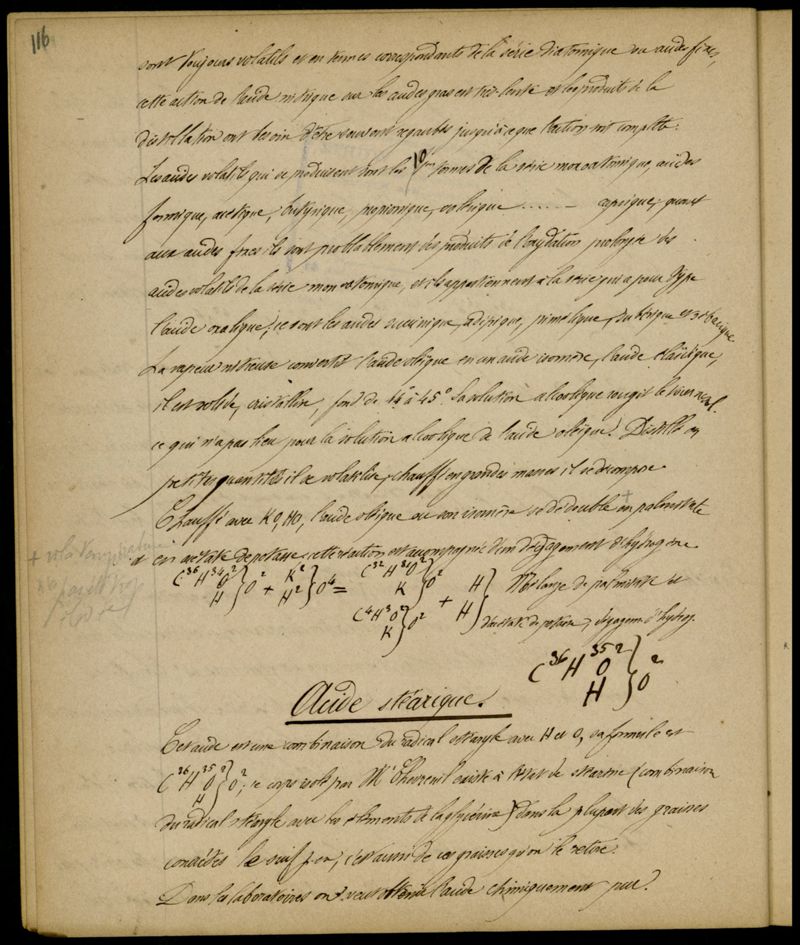 116
sont toujours volatils et en termes correspondants de la série diatomique ou acides fixes,
cette action de l'acide nitrique sur les acides gras est très lente et les produits de la
distillation ont besoin d'être souvent reversés jusqu'à ce que l'action soit complète.
Les acides volatils qui se produisent sont les 10 1ers termes de la série monoatomique, acides
formique, acétique, butyrique, propionique, valérique ------ caprique, quant
aux acides fixes ils sont probablement des produits de l'oxydation prolongée des
acides volatils de la série monoatomique, et ils appartiennent à la série qui a pour type
l'acide oxalique; ce sont les acides succinique, adipique, pimélique, subérique et sébacique
La vapeur nitreuse convertit l'acide oléique en un acide isomère, l'acide élaïdique,
il est solide, cristallise, fond de 44 à 45° sa solution alcoolique rougit le tournesol.
ce qui n'a pas lieu pour la solution alcoolique de l'acide oléique. Distillé en
petites quantités il se volatilise, chauffé en grandes masses il se décompose
Chauffé avec KO, HO, l'acide oléique ou son isomère se dédouble en palmitate +
et en acétate de potasse; cette réaction est accompagnée d'un dégagement d'hydrogène
+ à la température
C36 H34 O2 / H } O2 + K2 / H2 } O4 = C32 H31 O2 / K } O2 / C4 H3 O2 / K } O2 + H / H } Mélange de palmitate et
d'acétate de potasse, dégagem. d'hydrog.
Acide stéarique. C36 H35 O2 / H } O2
Cet acide est une combinaison du radical stéaryle avec H et O, sa formule est
C36 H35 O2 / H } O2; ce corps isolé par Mr Chevreul existe à l'état de stéarine (combinaison
du radical stéaryle avec les éléments de la glycérine) dans la plupart des graisses
concrètes le suif p. ex; c'est aussi de ces graisses qu'on le retire.
Dans les laboratoires on veut obtenir l'acide chimiquement pur.